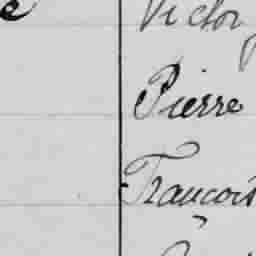 Victor
Pierre
François